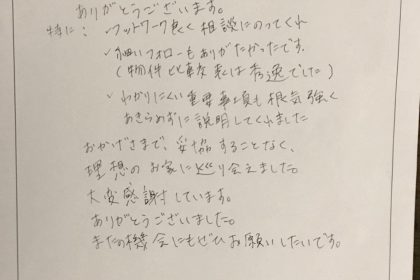 ありがとうございます。
特に: ✓フットワーク良く相談にのってくれ
✓細いフォローもありがたかったです。
(物件比較表は秀逸でした)
✓わかりにくい重要事項も根気強く
あきらめずに説明してくれました
おかげさまで、妥協することなく、
理想のお家に巡り会えました。
大変感謝しています。
ありがとうございました。
またの機会にもぜひお願いしたいです。